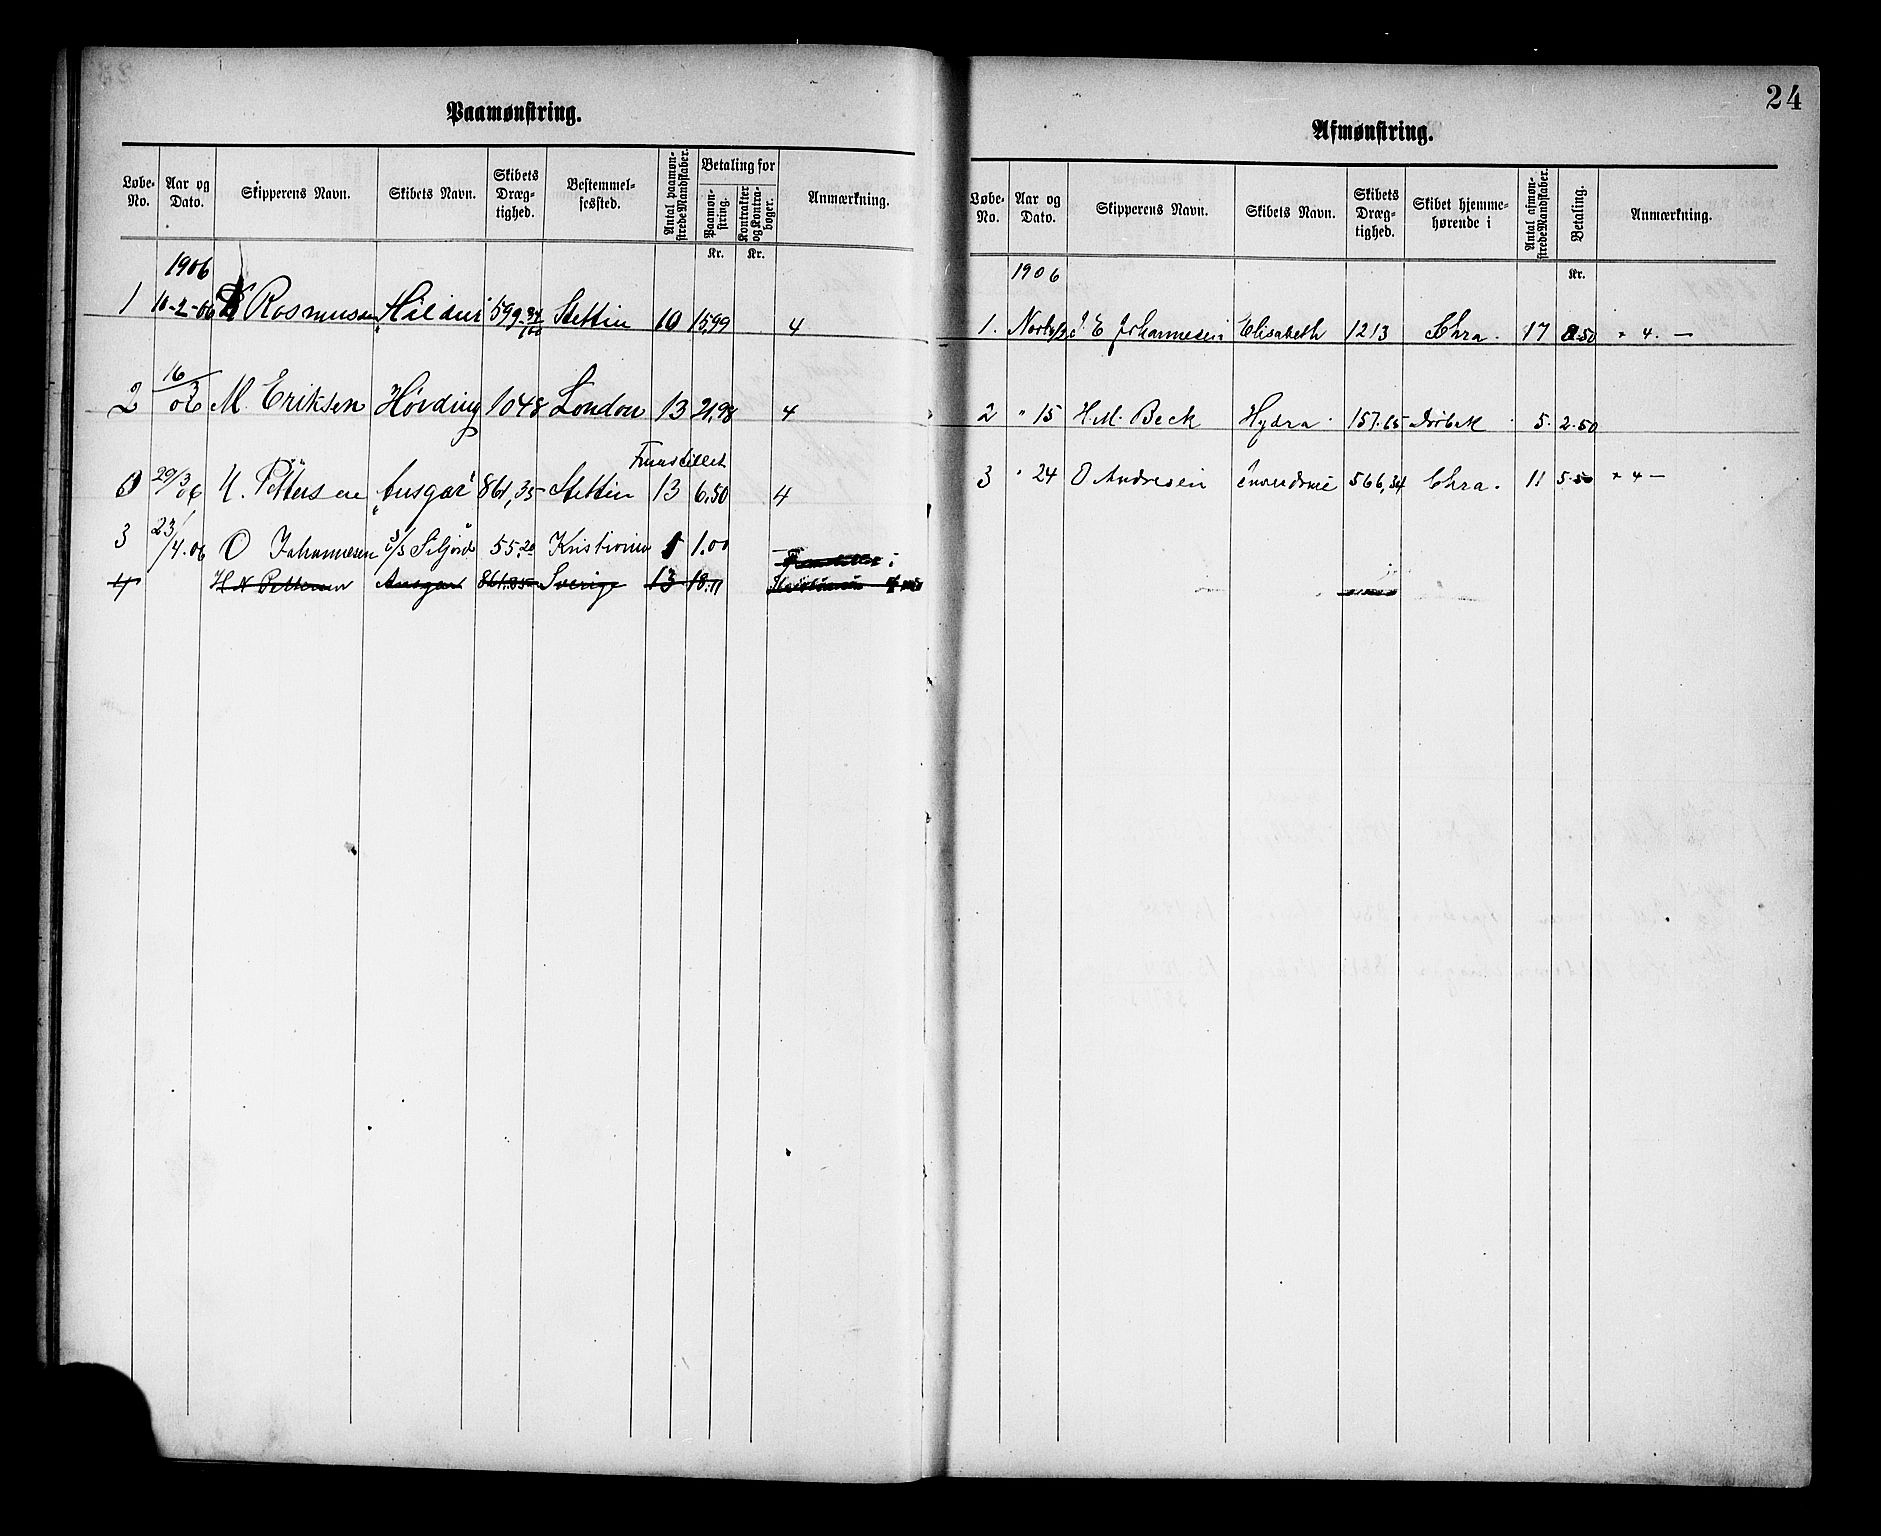 24
Paamønstring.
Løbe-No. Aar og Dato. Skipperens Navn. Skibets Navn. Skibets Dræg-tighed. Bestemmel-sessted. Antal paamøn-strede Mandskaber. Betaling for Paamøn-string. Kontrakter og Kontra-bøger. Anmærkning.
Kr. Kr.
1906
1 10-2-06 Rasmusen "Hildur" 599 34/100 Stettin 10 15,99 4
2 16/3 06 M. Eriksen Høvding 1048 London 13 21,98 4
29/3 06 N. Pettersen "Ansgar" 861,35 Stettin 13 6,50 4
3 23/4.06 O Johannesen S/S Siljord 55.20 Kristiania 1 1.00
4 H N Pettersen Ansgar 861.35 Sverige 13 18,11
Afmønstring.
Løbe-No. Aar og Dato. Skipperens Navn. Skibets Navn. Skibets Dræg-tighed. Skibet hjemme-hørende i Antal afmøn-strede Mandskaber. Betaling. Anmærkning.
Kr.
1906
1. J. E Johannesen Elisabeth 1213 Chra. 17 8.50 " 4. —
2 " 15 H. M. Beck Hydra 157.65 5. 2.50
3 " 24 O Andresen 566,34 Chra. 11 5.50 " 4 —